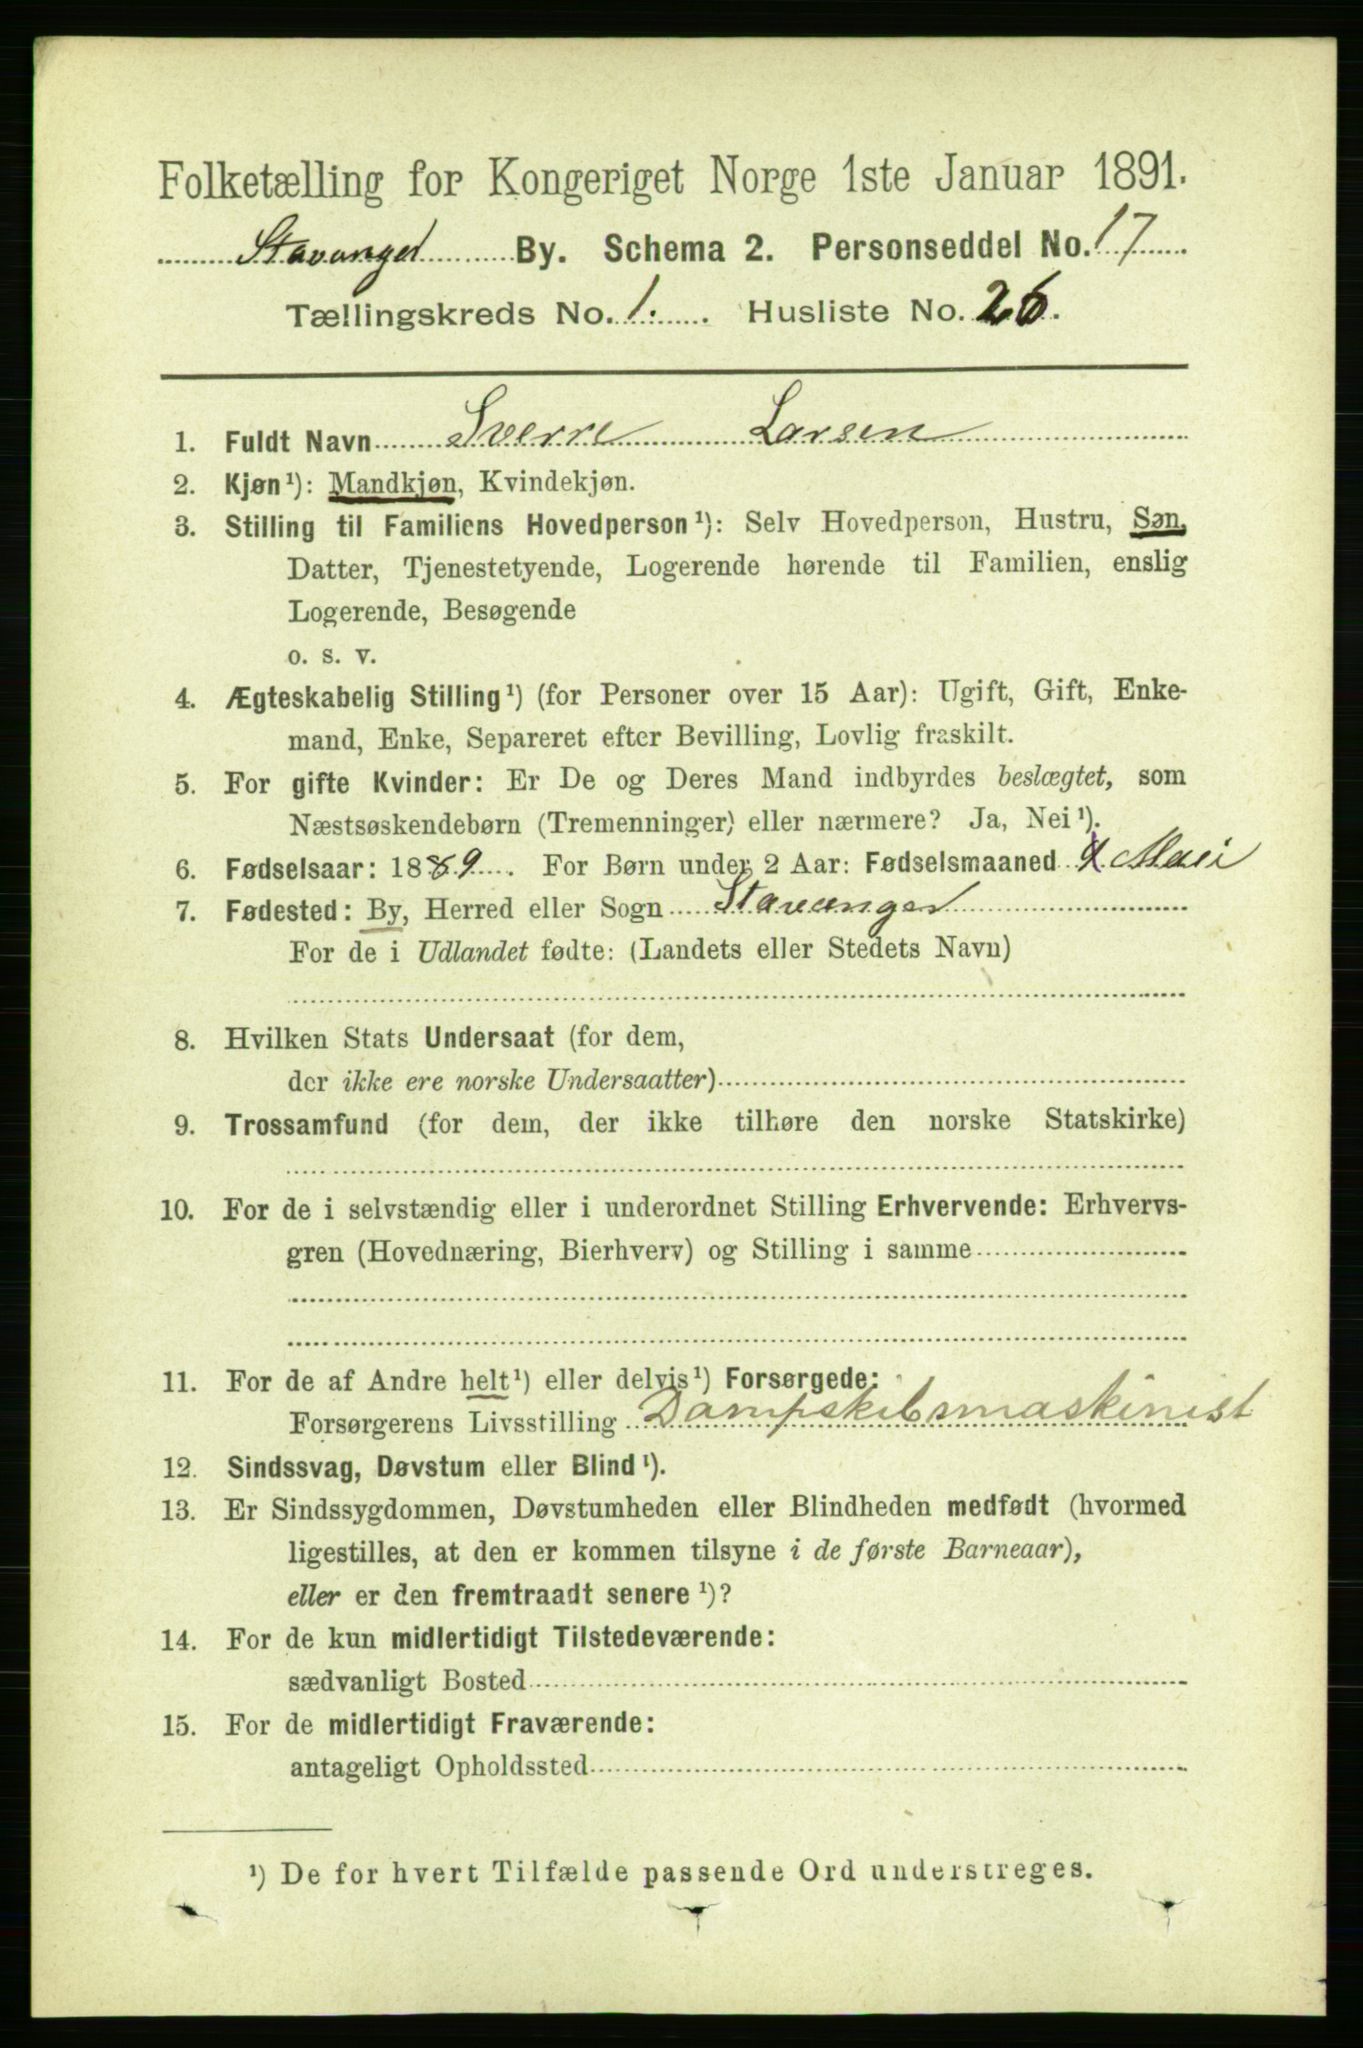 Folketælling for Kongeriget Norge 1ste Januar 1891.
Stavanger By. Schema 2. Personseddel No. 17
Tællingskreds No. 1. Husliste No. 26.
1. Fuldt Navn Sverre Larsen
2. Kjøn¹): Mandkjøn, Kvindekjøn.
3. Stilling til Familiens Hovedperson¹): Selv Hovedperson, Hustru, Søn,
Datter, Tjenestetyende, Logerende hørende til Familien, enslig
Logerende, Besøgende
o. s. v.
4. Ægteskabelig Stilling¹) (for Personer over 15 Aar): Ugift, Gift, Enke-
mand, Enke, Separeret efter Bevilling, Lovlig fraskilt.
5. For gifte Kvinder: Er De og Deres Mand indbyrdes beslægtet, som
Næstsøskendebørn (Tremenninger) eller nærmere? Ja, Nei¹).
6. Fødselsaar: 1889. For Børn under 2 Aar: Fødselsmaaned Mai
7. Fødested: By, Herred eller Sogn Stavanger
For de i Udlandet fødte: (Landets eller Stedets Navn)
8. Hvilken Stats Undersaat (for dem,
der ikke ere norske Undersaatter)
9. Trossamfund (for dem, der ikke tilhøre den norske Statskirke)
10. For de i selvstændig eller i underordnet Stilling Erhvervende: Erhvervs-
gren (Hovednæring, Bierhverv) og Stilling i samme
11. For de af Andre helt¹) eller delvis¹) Forsørgede:
Forsørgerens Livsstilling Dampskibsmaskinist
12. Sindssvag, Døvstum eller Blind¹).
13. Er Sindssygdommen, Døvstumheden eller Blindheden medfødt (hvormed
ligestilles, at den er kommen tilsyne i de første Barneaar),
eller er den fremtraadt senere¹)?
14. For de kun midlertidigt Tilstedeværende:
sædvanligt Bosted
15. For de midlertidigt Fraværende:
antageligt Opholdssted
¹) De for hvert Tilfælde passende Ord understreges.